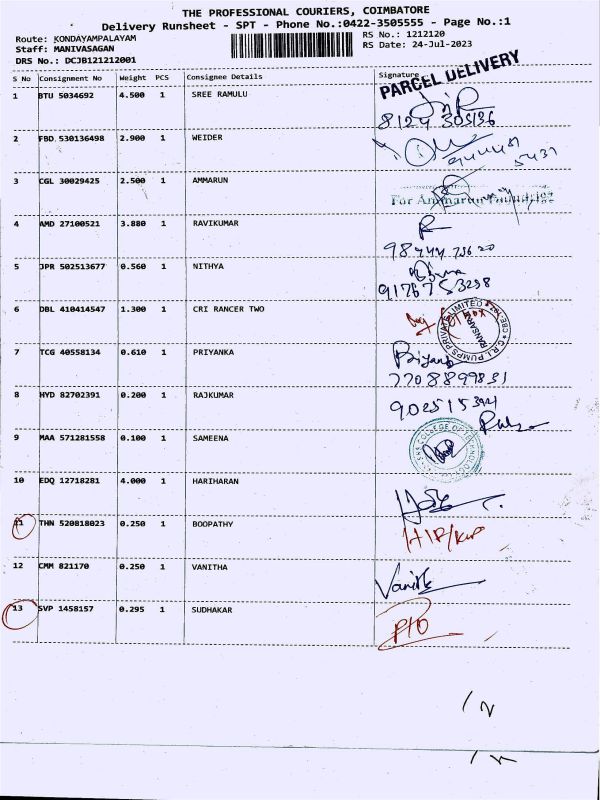 THE PROFESSIONAL COURIERS, COIMBATORE
Delivery Runsheet - SPT - Phone No.:0422-3505555 - Page No.:1
Route: KONDAYAMPALAYAM
RS No.: 1212120
Staff: MANIVASAGAN
RS Date: 24-Jul-2023
DRS No.: DCJB121212001
S No Consignment No Weight PCS Consignee Details Signature
PARCEL DELIVERY
1 BTU 5034692 4.500 1 SREE RAMULU
8124 305136
2 FBD 530136498 2.900 1 WEIDER
3 CGL 30029425 2.500 1 AMMARUN
For Ammarun Foundries
4 AMD 27100521 3.880 1 RAVIKUMAR
98444 73620
5 JPR 502513677 0.560 1 NITHYA
9176753298
6 DBL 410414547 1.300 1 CRI RANCER TWO
C.R.I. PUMPS PRIVATE LIMITED
7 TCG 40558134 0.610 1 PRIYANKA
Priyanka
7708899831
8 HYD 82702391 0.200 1 RAJKUMAR
9 MAA 571281558 0.100 1 SAMEENA
COLLEGE OF TECHNOLOGY
10 EDQ 12718281 4.000 1 HARIHARAN
11 THN 520818023 0.250 1 BOOPATHY
12 CMM 821170 0.250 1 VANITHA
Vanitha
13 SVP 1458157 0.295 1 SUDHAKAR
P/O